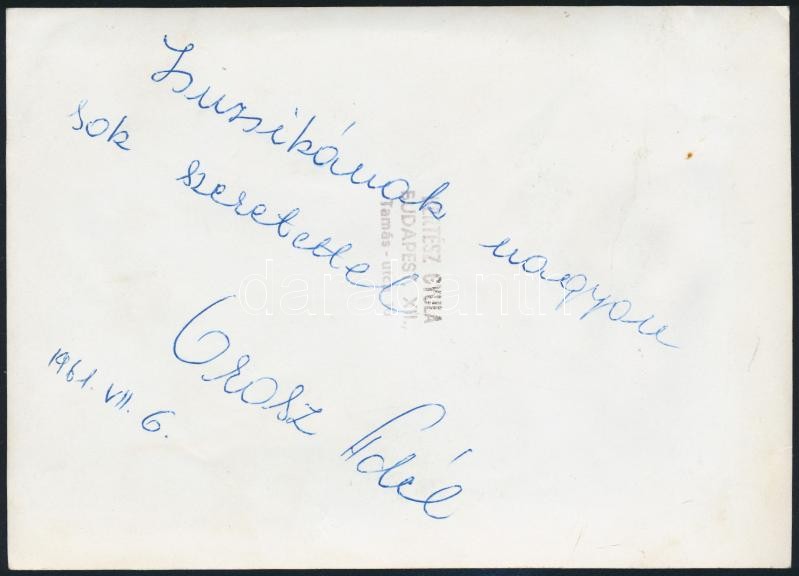 Zsuzsikának nagyon
sok szeretettel
Orosz Adél
1961. VII. 6.
KERTÉSZ GYULA
BUDAPEST, XII.,
Tamás-utca
darabanth